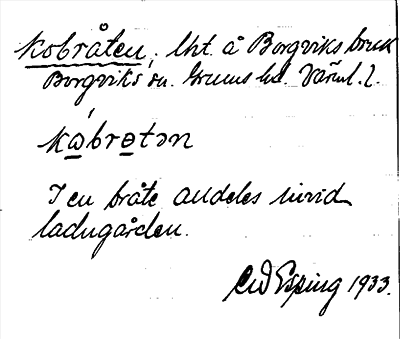 Kobråten, lht. å Borgviks bruk
Borgviks sn. Grums hd. Värml. l.
kabrɵtən
I en bråte alldeles invid
ladugården.
Esping 1933.